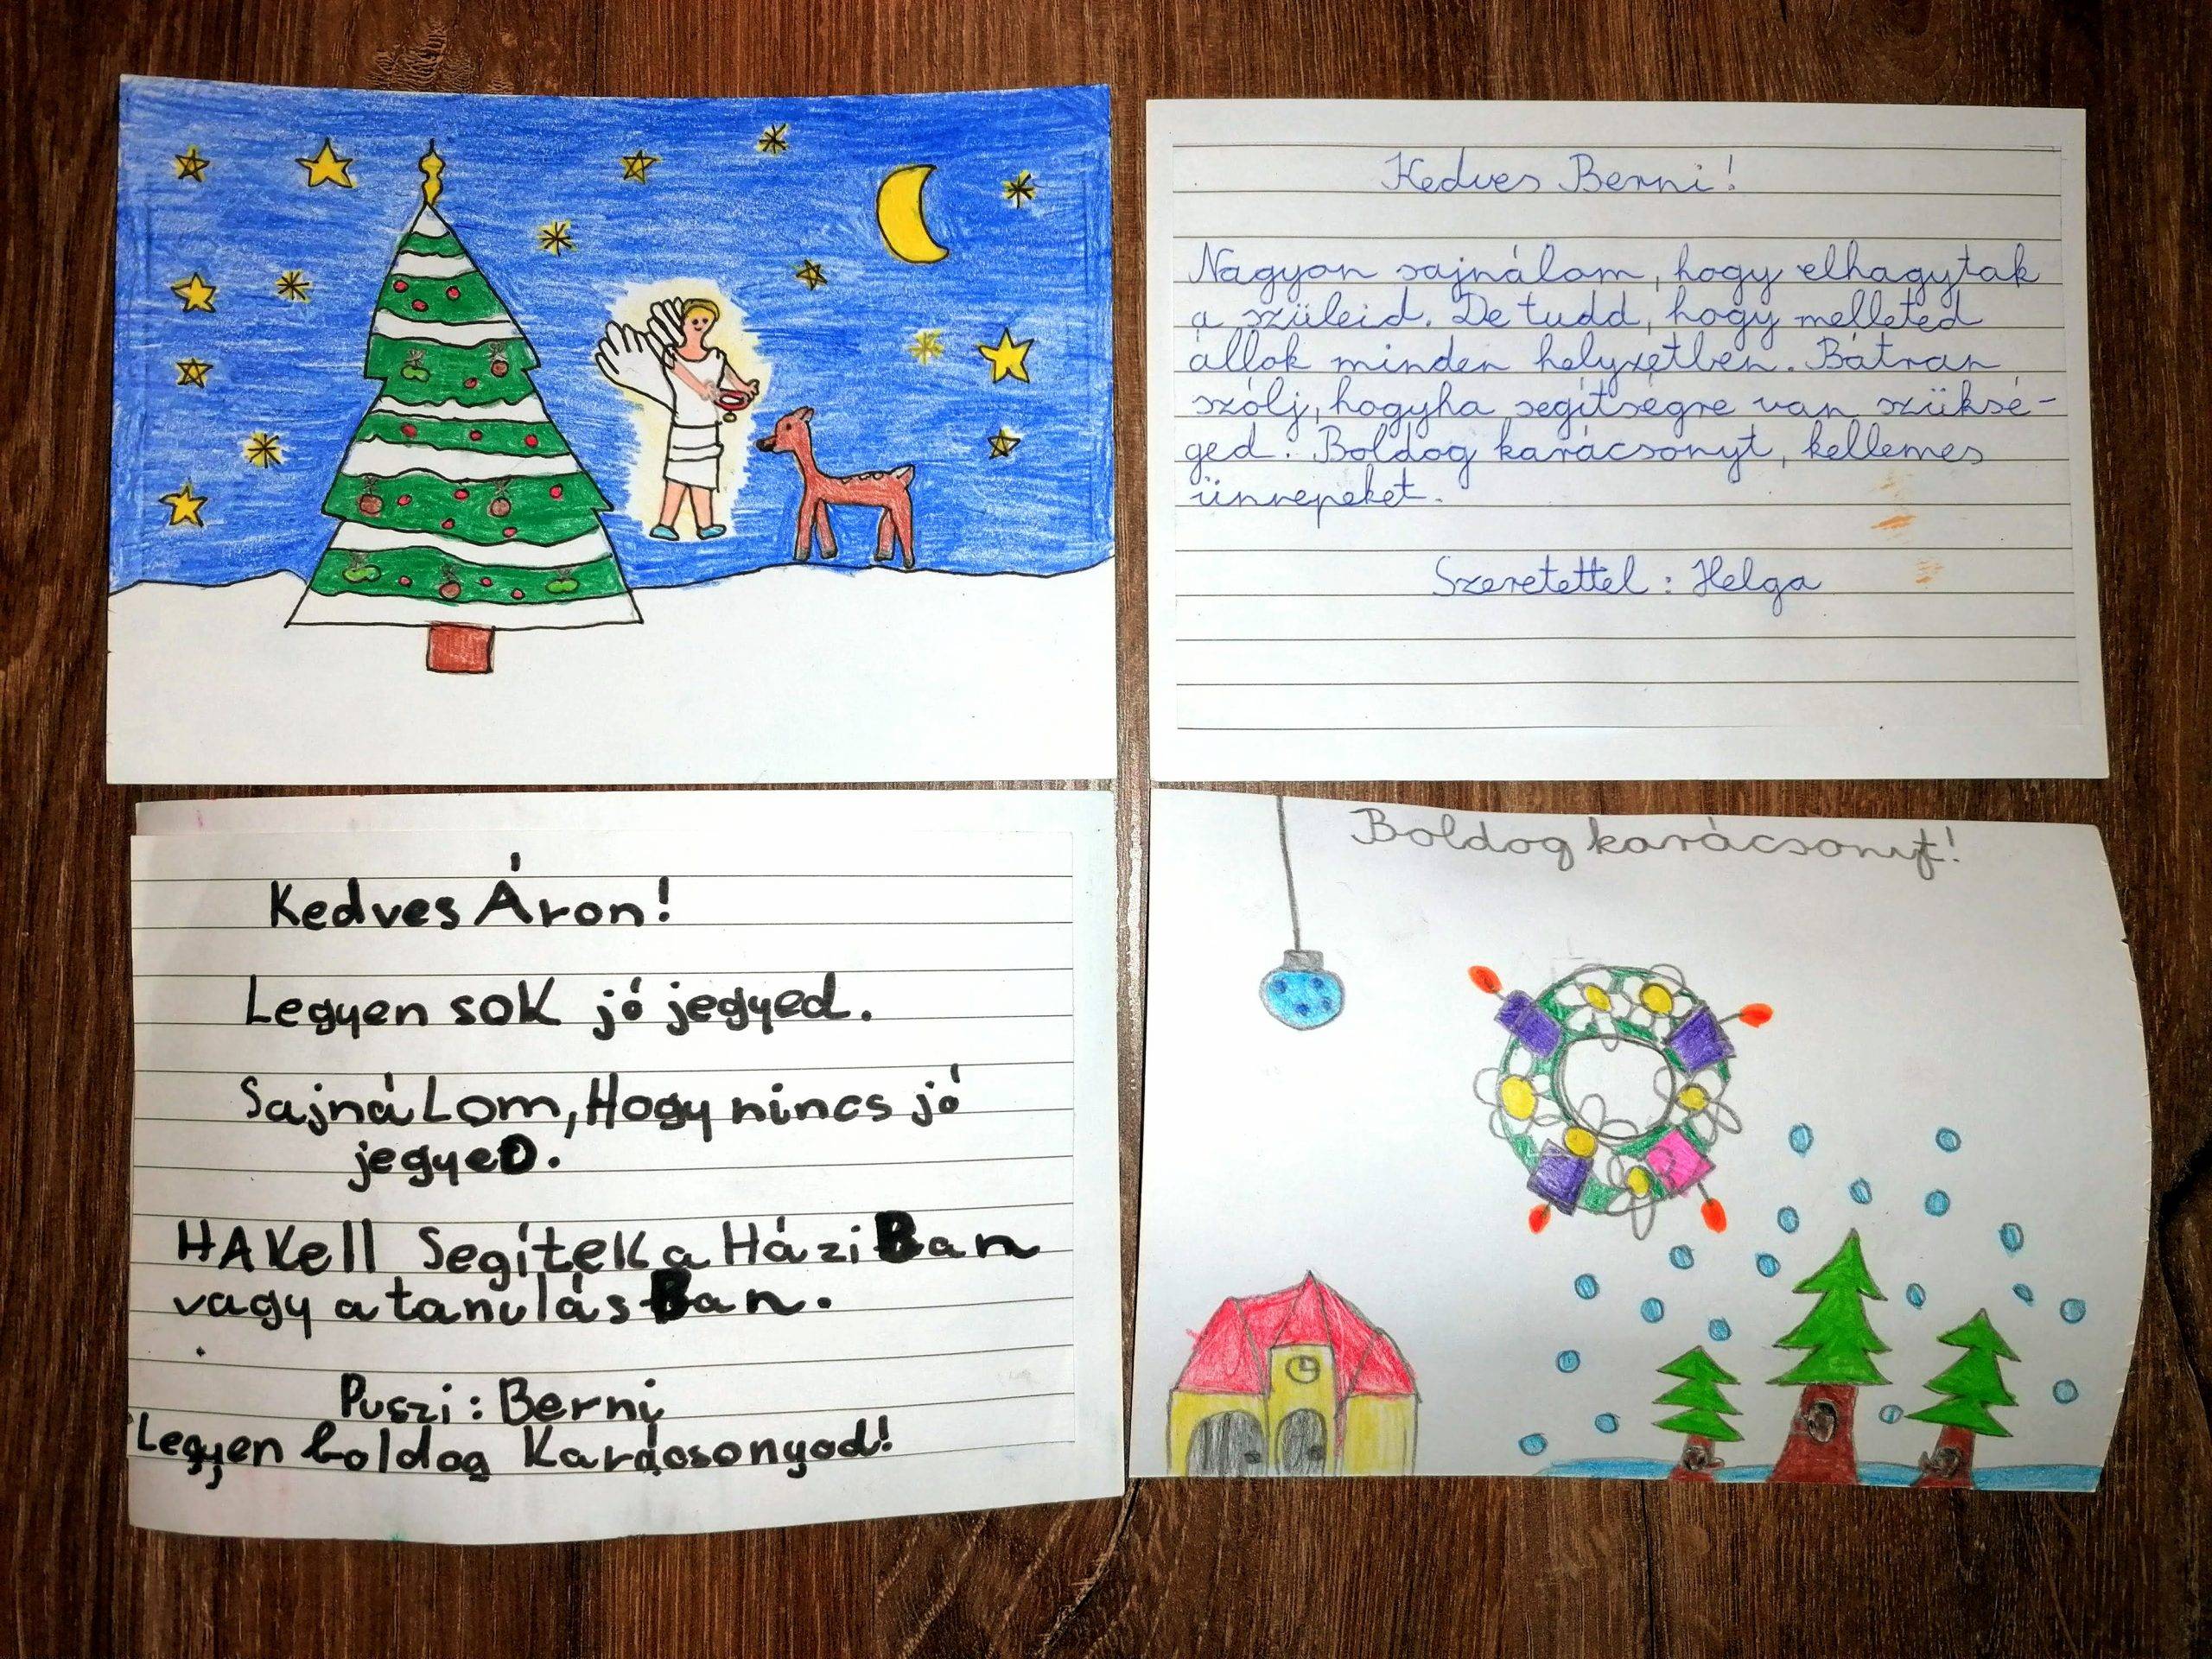 Kedves Berni!
Nagyon sajnálom, hogy elhagytak
a szüleid. De tudd, hogy melleted
állok minden helyzetben. Bátran
szólj, hogyha segítségre van szüksé-
ged. Boldog karácsonyt, kellemes
ünnepeket.
Szeretettel: Helga
Kedves Áron!
Legyen soK jó jegyed.
SajnáLom, Hogy nincs jó
jegyeD.
HA Kell SegíteK a HáziBan
vagy a tanulásBan.
Puszi: Berni
Legyen boldog Karácsonyod!
Boldog karácsonyt!